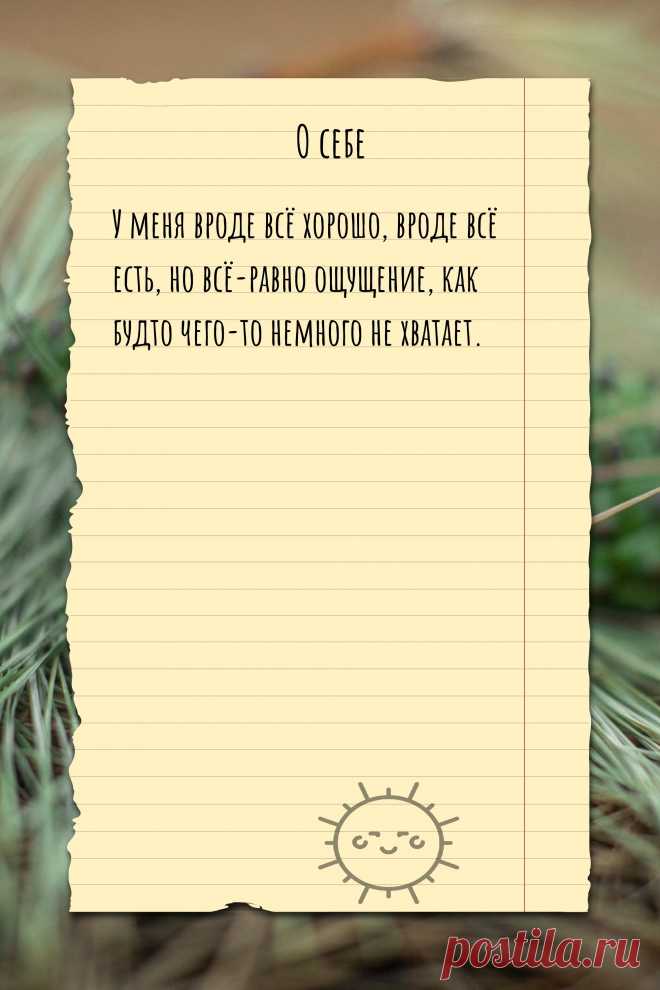 О себе
У меня вроде всё хорошо, вроде всё
есть, но всё-равно ощущение, как
будто чего-то немного не хватает.
postila.ru